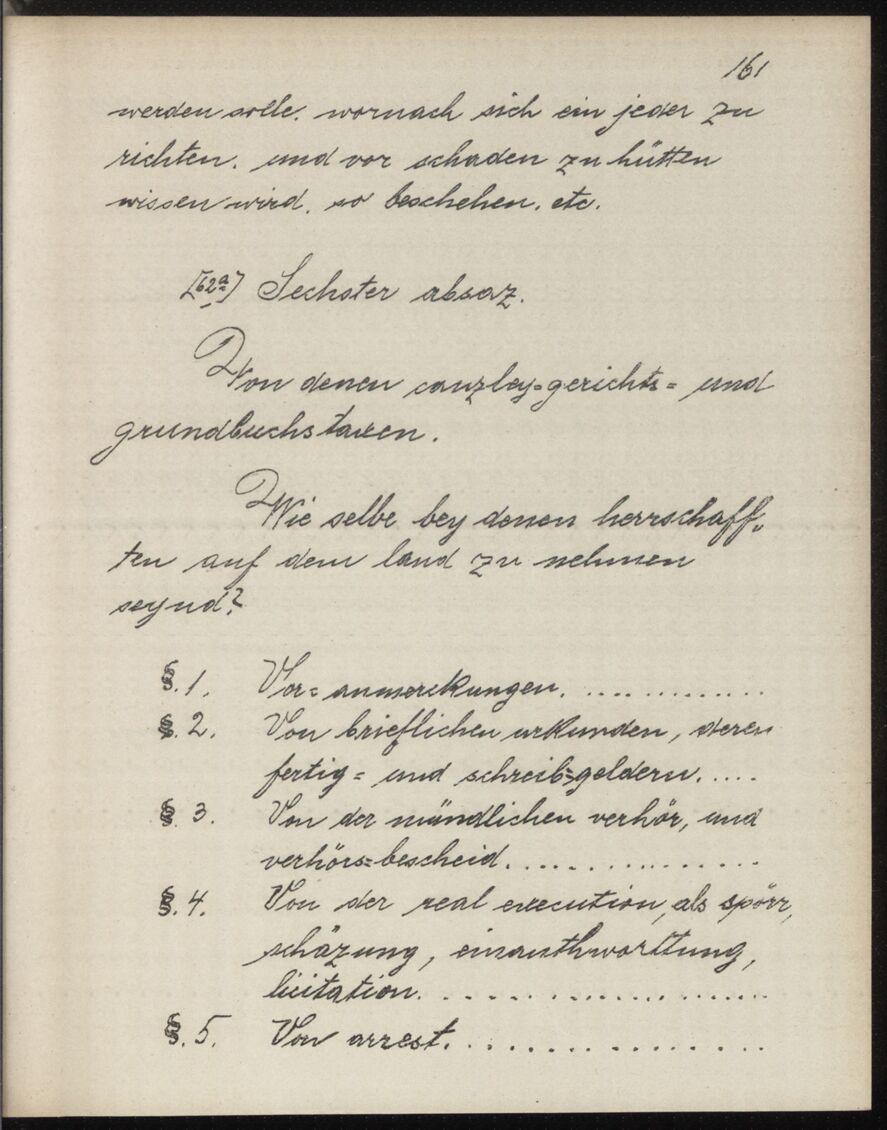 161
werden solle. wornach sich ein jeder zu
richten. und vor schaden zu hütten
wissen wird. so beschehen. etc.
[62a] Sechster absaz.
Von denen canzley=gerichts= und
grundbuchstaxen.
Wie selbe bey denen herrschaff„
ten auf dem land zu nehmen
seynd?
§. 1. Vor=anmerckungen. .............
§. 2. Von brieflichen urkunden, deren
fertig= und schreib=geldern. ....
§. 3. Von der mündlichen verhör, und
verhörs=bescheid. ..............
§. 4. Von der real execution, als spörr,
schäzung, einanthworttung,
licitation. ....................
§. 5. Von arrest. ..................